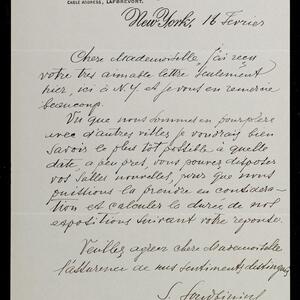 CABLE ADDRESS, LAFBREVORT.
New York, 16 Fevrier
Chere Mademoiselle, j'ai reçu
votre tres aimable lettre seulement
hier, ici à N.Y. et je vous en remercie
beaucoup.
Vu que nous sommes en pourparlers
avec d'autres villes je voudrais bien
savoir le plus tôt possible à quelle
date, à peu pres, vous pouvez disposer
vos salles nouvelles, pour que nous
puissions la prendre en considera-
tion et calculer la durée de nos
expositions suivant votre reponse.
Veuillez agreer chere Mademoiselle
l'assurence de mes sentiments distingués
S.